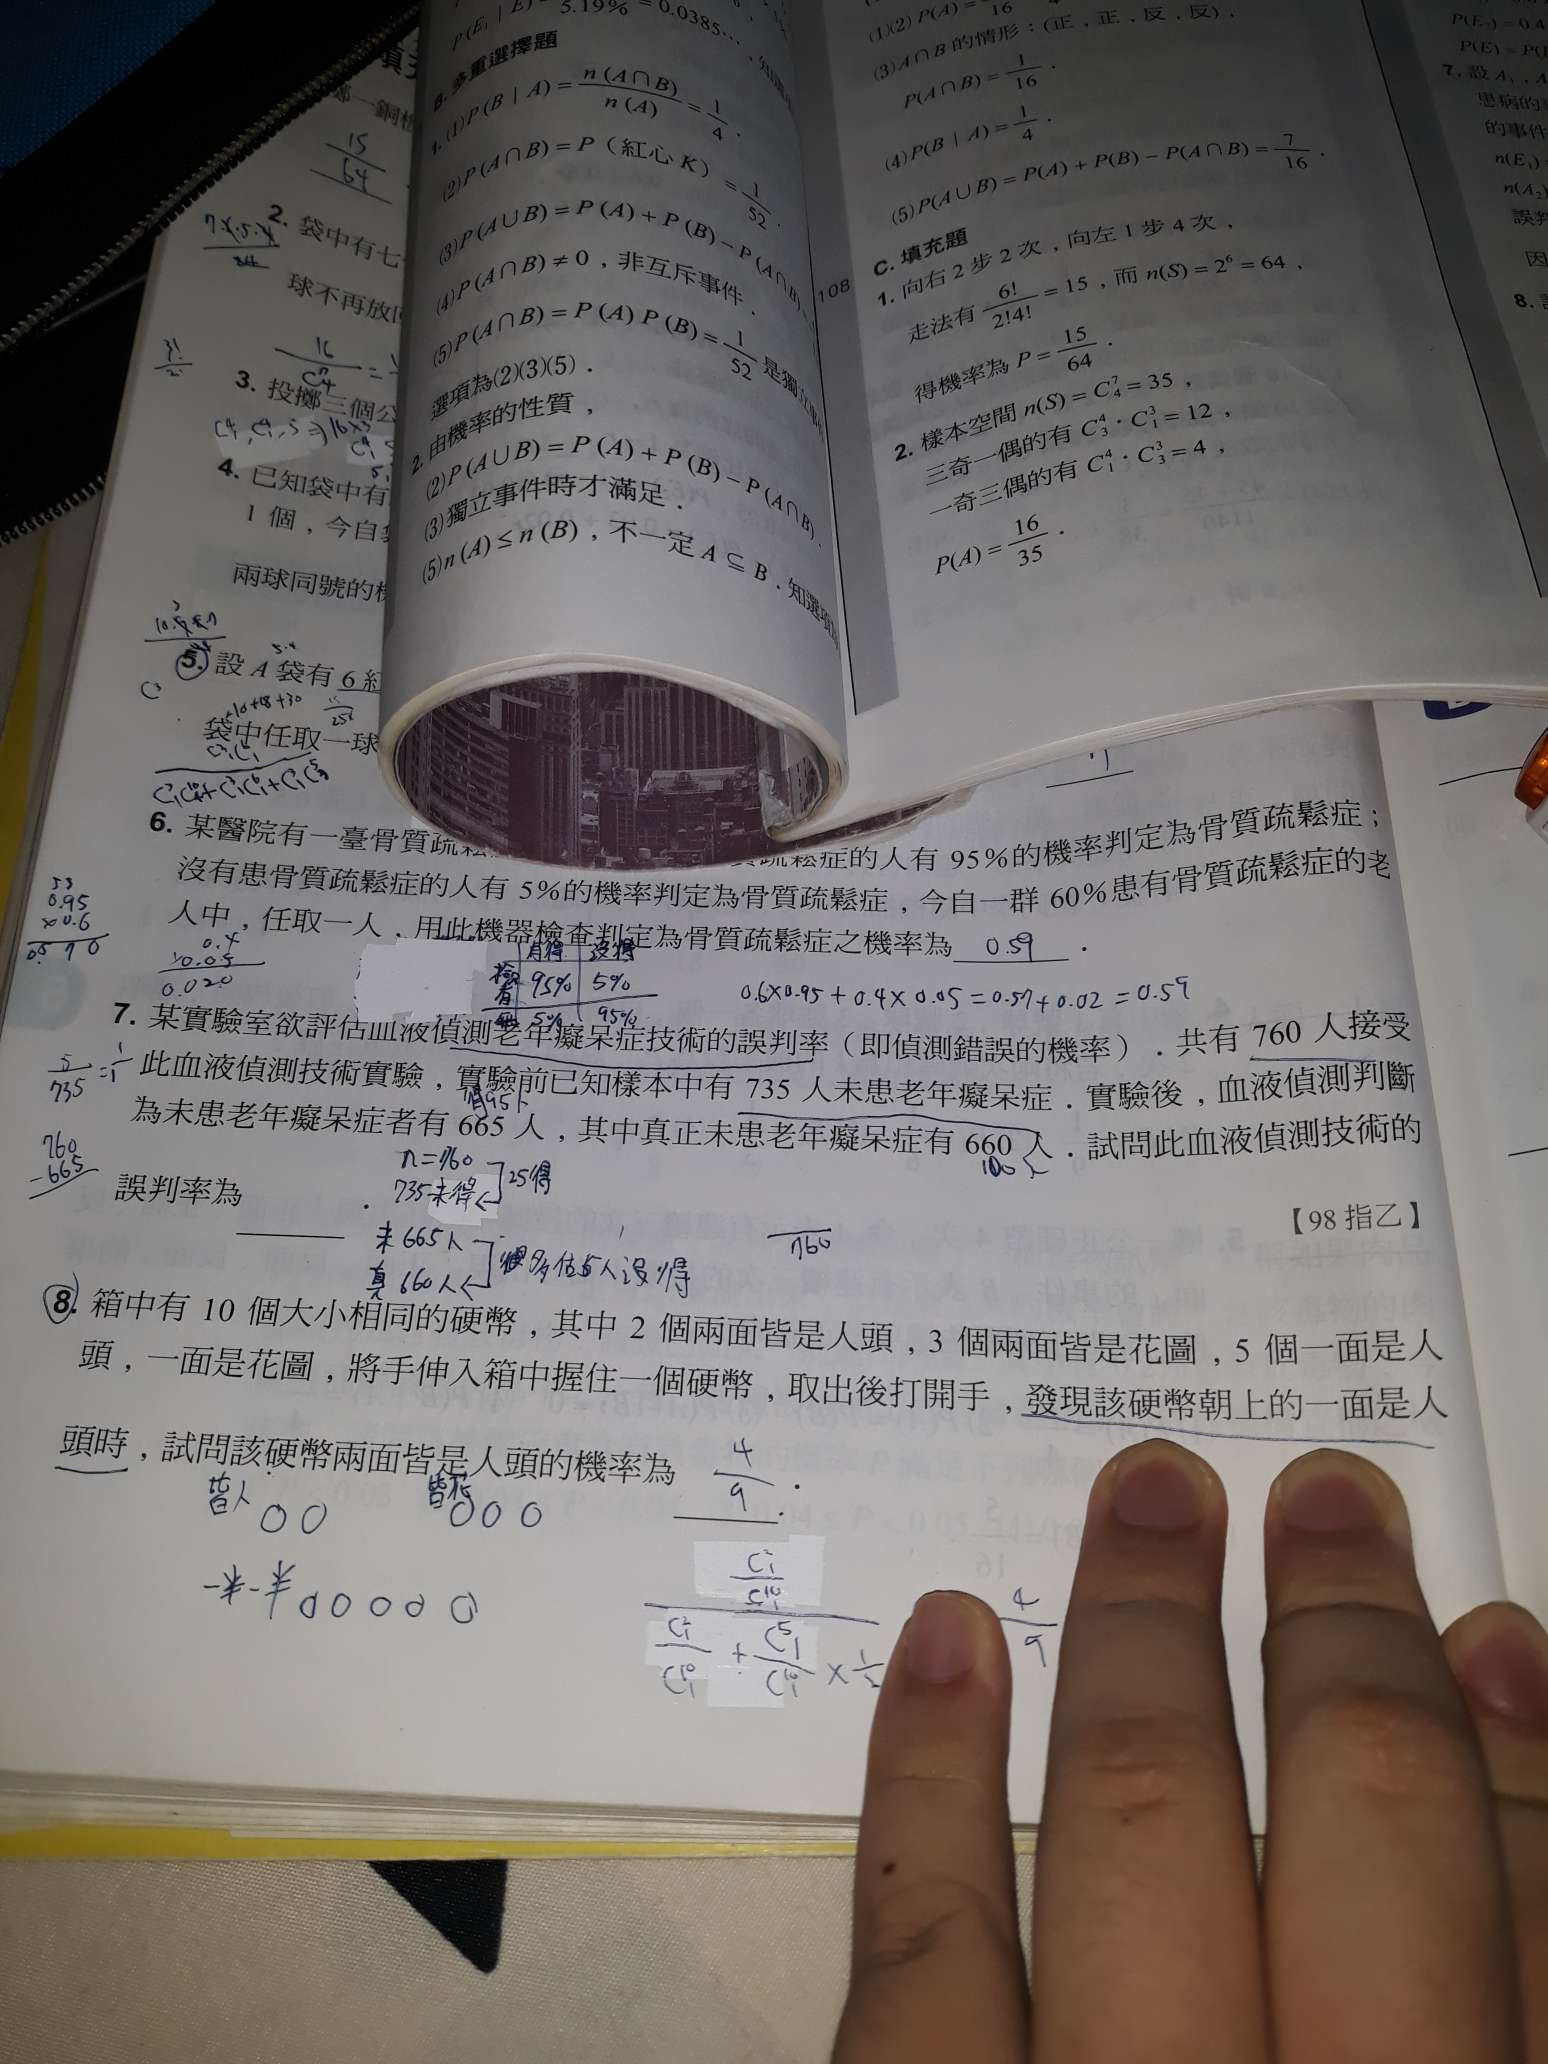 P(E₁|E)=
5.19%
= 0.0385⋯
B. 多重選擇題
1. (1) P(B|A) = n(A∩B)/n(A) = 1/4 .
(2) P(A∩B) = P(紅心K) = 1/52 .
(3) P(A∪B) = P(A) + P(B) − P(A∩B)
(4) P(A∩B) ≠ 0，非互斥事件．
(5) P(A∩B) = P(A) P(B) = 1/52 是獨立事件
選項為(2)(3)(5)．
2. 由機率的性質，
(2) P(A∪B) = P(A) + P(B) − P(A∩B) .
(3) 獨立事件時才滿足．
(5) n(A) ≤ n(B)，不一定 A ⊆ B．知選項
108
(1)(2) P(A) =
16
(3) A∩B 的情形：(正，正，反，反)，
P(A∩B) = 1/16 .
(4) P(B|A) = 1/4 .
(5) P(A∪B) = P(A) + P(B) − P(A∩B) = 7/16 .
C. 填充題
1. 向右 2 步 2 次，向左 1 步 4 次，
走法有 6!/2!4! = 15，而 n(S) = 2⁶ = 64，
得機率為 P = 15/64 .
2. 樣本空間 n(S) = C⁷₄ = 35，
三奇一偶的有 C⁴₃ · C³₁ = 12，
一奇三偶的有 C⁴₁ · C³₃ = 4，
P(A) = 16/35 .
P(E₂) = 0.4
P(E) = P(
7. 設 A₁，A
患病的
的事件
n(E₁)
n(A₂)
誤判
因
8.
擲一銅板
15/64
2. 袋中有七
球不再放回
3. 投擲三個公
4. 已知袋中有
1 個，今自
兩球同號的機
5. 設 A 袋有 6 紅
+10+18+30
袋中任取一球
6. 某醫院有一臺骨質疏鬆
質疏鬆症的人有 95%的機率判定為骨質疏鬆症；
沒有患骨質疏鬆症的人有 5%的機率判定為骨質疏鬆症，今自一群 60%患有骨質疏鬆症的老
人中，任取一人，用此機器檢查判定為骨質疏鬆症之機率為 0.59 ．
0.95
×0.6
0.570
0.4
×0.05
0.020
有得 沒得
檢有 95% 5%
無 5% 95%
0.6×0.95 + 0.4×0.05 = 0.57 + 0.02 = 0.59
7. 某實驗室欲評估血液偵測老年癡呆症技術的誤判率（即偵測錯誤的機率）．共有 760 人接受
此血液偵測技術實驗，實驗前已知樣本中有 735 人未患老年癡呆症．實驗後，血液偵測判斷
為未患老年癡呆症者有 665 人，其中真正未患老年癡呆症有 660 人．試問此血液偵測技術的
誤判率為 ．
【98 指乙】
5/735 =
得95人
100人
760
-665
n=760
735未得
25得
未 665人
真 660人
多估5人沒得
760
8. 箱中有 10 個大小相同的硬幣，其中 2 個兩面皆是人頭，3 個兩面皆是花圖，5 個一面是人
頭，一面是花圖，將手伸入箱中握住一個硬幣，取出後打開手，發現該硬幣朝上的一面是人
頭時，試問該硬幣兩面皆是人頭的機率為 4/9 ．
皆人 OO
皆花 OOO
一半一半 OOOOO
C²₁/C¹⁰₁
C²₁/C¹⁰₁ + C⁵₁/C¹⁰₁ × 1/2
4/9